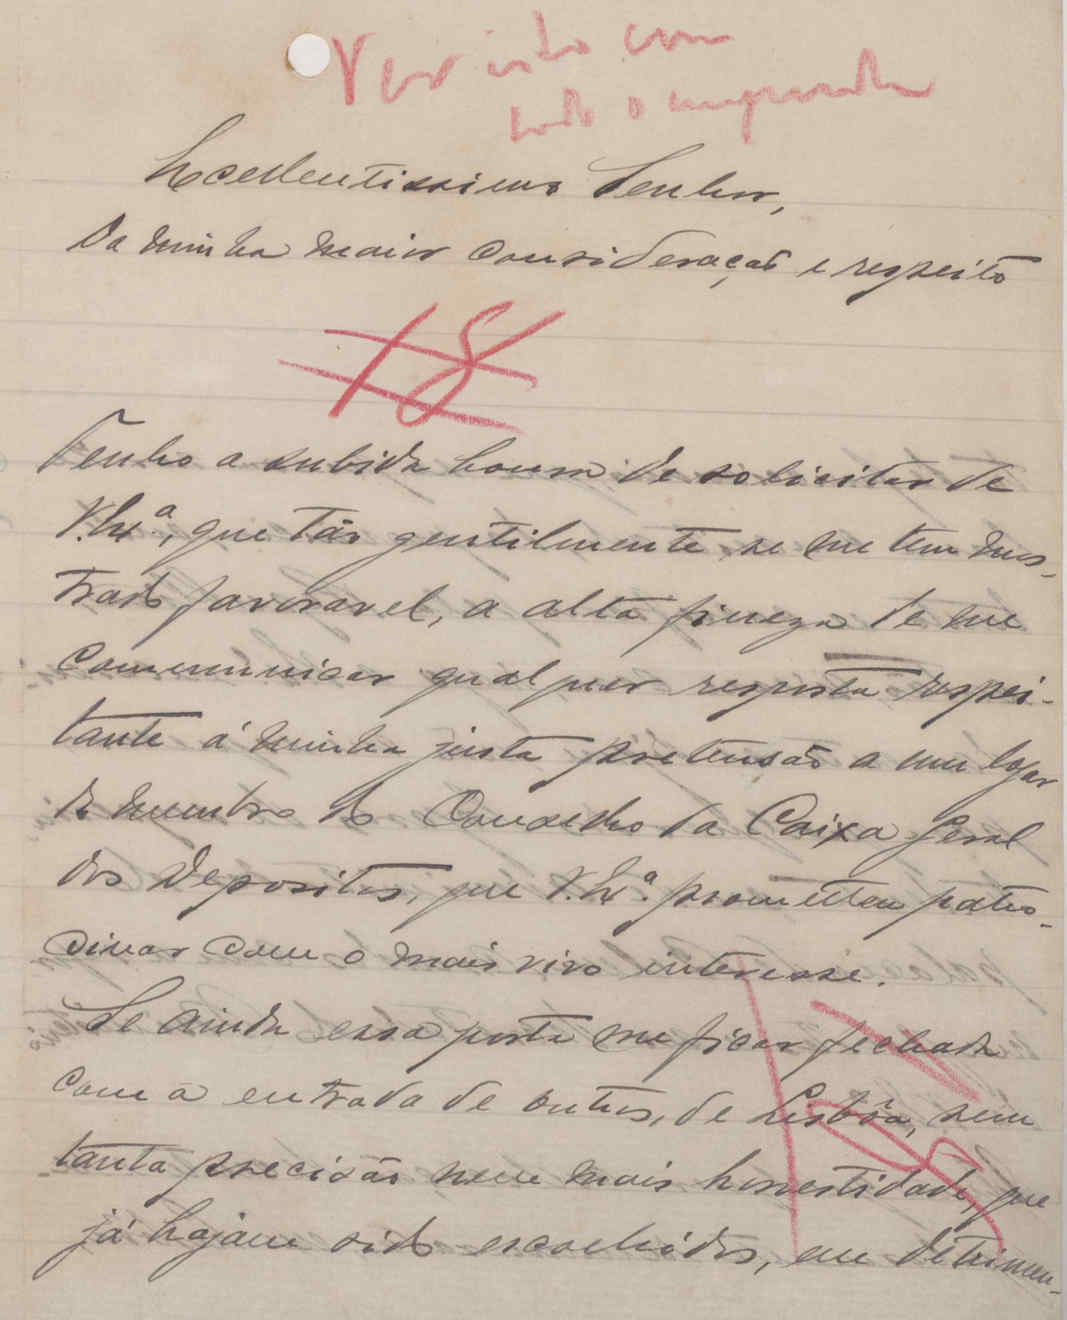 Ver isto com
todo o empenho
Excellentissimo Senhor,
Da minha maior consideração e respeito
18
Tenho a subida honra de solicitar de
V. Exª, que tão gentilmente se me tem mos-
trado favoravel, a alta fineza de me
communicar qualquer resposta respei-
tante á minha justa pretensão a um logar
de membro do Conselho da Caixa Geral
dos Depositos, que V. Exª. prometteu patro-
cinar com o mais vivo interesse.
Se ainda essa porta me ficar fechada
com a entrada de outros, de Lisbôa, sem
tanta precisão nem mais honestidade, que
já hajam sido escolhidos, em detrimen-